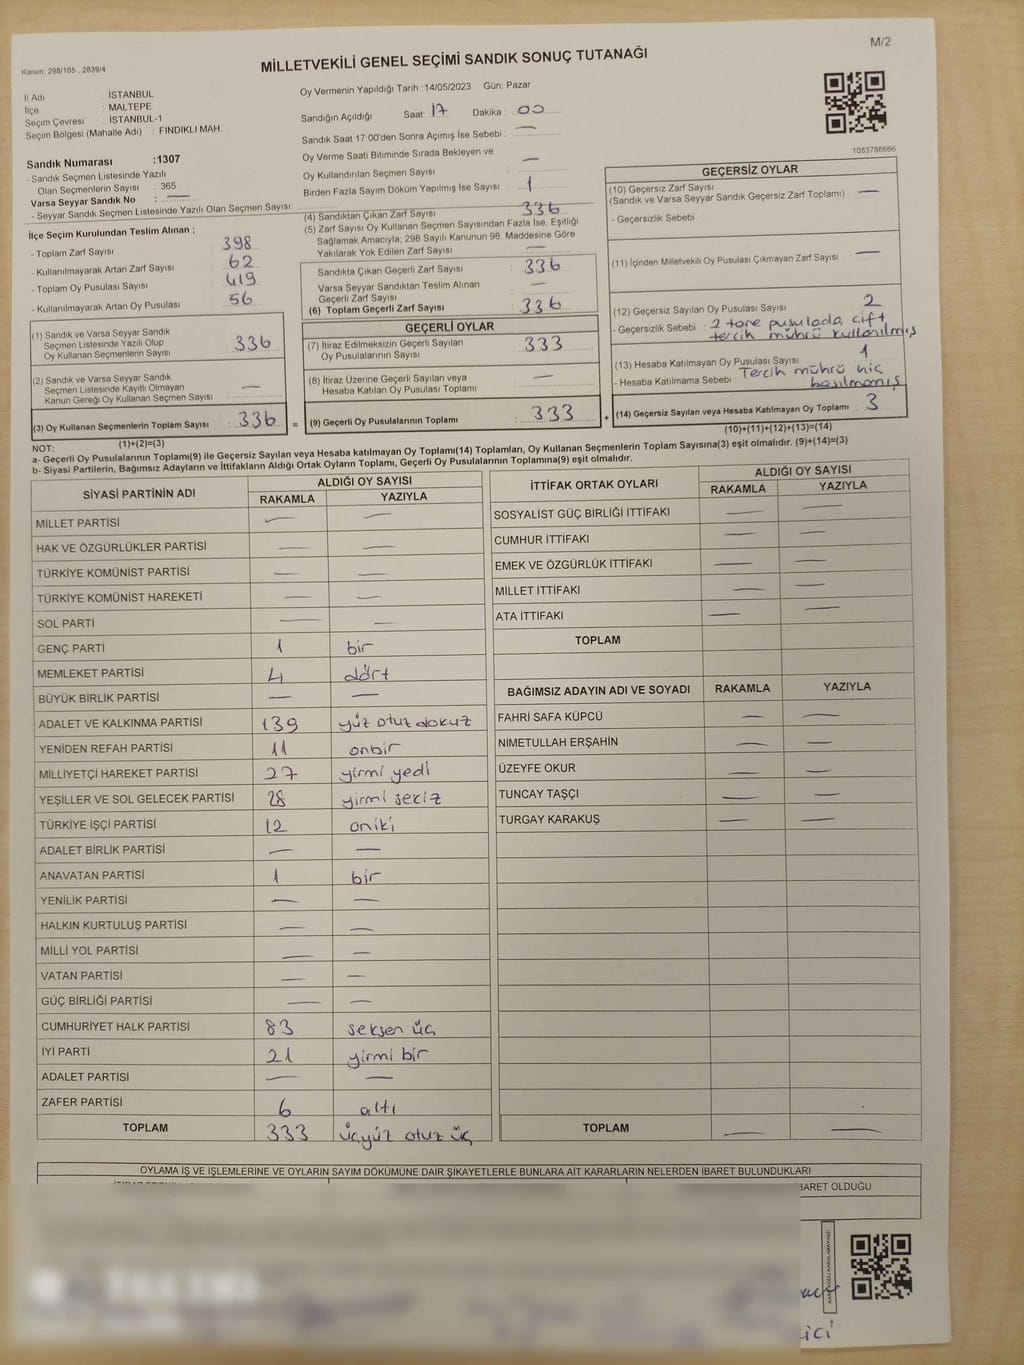 M/2
Kanun, 298/105 , 2839/4
MİLLETVEKİLİ GENEL SEÇİMİ SANDIK SONUÇ TUTANAĞI
İl Adı : İSTANBUL
İlçe : MALTEPE
Seçim Çevresi : İSTANBUL-1
Seçim Bölgesi (Mahalle Adı) : FINDIKLI MAH.
Sandık Numarası :1307
- Sandık Seçmen Listesinde Yazılı
Olan Seçmenlerin Sayısı : 365
Varsa Seyyar Sandık No : —
- Seyyar Sandık Seçmen Listesinde Yazılı Olan Seçmen Sayısı:
İlçe Seçim Kurulundan Teslim Alınan ;
- Toplam Zarf Sayısı : 398
- Kullanılmayarak Artan Zarf Sayısı : 62
- Toplam Oy Pusulası Sayısı : 419
- Kullanılmayarak Artan Oy Pusulası : 56
(1) Sandık ve Varsa Seyyar Sandık
Seçmen Listesinde Yazılı Olup
Oy Kullanan Seçmenlerin Sayısı : 336
(2) Sandık ve Varsa Seyyar Sandık
Seçmen Listesinde Kayıtlı Olmayan
Kanun Gereği Oy Kullanan Seçmen Sayısı : —
(3) Oy Kullanan Seçmenlerin Toplam Sayısı : 336
(1)+(2)=(3)
Oy Vermenin Yapıldığı Tarih :14/05/2023 Gün: Pazar
Sandığın Açıldığı Saat: 17 Dakika : 00
Sandık Saat 17:00'den Sonra Açımış İse Sebebi : —
Oy Verme Saati Bitiminde Sırada Bekleyen ve
Oy Kullandırılan Seçmen Sayısı : —
Birden Fazla Sayım Döküm Yapılmış İse Sayısı : 1
(4) Sandıktan Çıkan Zarf Sayısı : 336
(5) Zarf Sayısı Oy Kullanan Seçmen Sayısından Fazla İse, Eşitliği
Sağlamak Amacıyla; 298 Sayılı Kanunun 98. Maddesine Göre
Yakılarak Yok Edilen Zarf Sayısı : —
Sandıkta Çıkan Geçerli Zarf Sayısı : 336
Varsa Seyyar Sandıktan Teslim Alınan
Geçerli Zarf Sayısı : —
(6) Toplam Geçerli Zarf Sayısı : 336
GEÇERLİ OYLAR
(7) İtiraz Edilmeksizin Geçerli Sayılan
Oy Pusulalarının Sayısı : 333
(8) İtiraz Üzerine Geçerli Sayılan veya
Hesaba Katılan Oy Pusulası Toplamı : —
= (9) Geçerli Oy Pusulalarının Toplamı : 333 +
1083786666
GEÇERSİZ OYLAR
(10) Geçersiz Zarf Sayısı : —
(Sandık ve Varsa Seyyar Sandık Geçersiz Zarf Toplamı)
- Geçersizlik Sebebi :
(11) İçinden Milletvekili Oy Pusulası Çıkmayan Zarf Sayısı : —
(12) Geçersiz Sayılan Oy Pusulası Sayısı : 2
- Geçersizlik Sebebi : 2 tane pusulada çift
tercih mührü kullanılmış
(13) Hesaba Katılmayan Oy Pusulası Sayısı : 1
- Hesaba Katılmama Sebebi : Tercih mührü hiç
basılmamış
(14) Geçersiz Sayılan veya Hesaba Katılmayan Oy Toplamı : 3
(10)+(11)+(12)+(13)=(14)
NOT:
a- Geçerli Oy Pusulalarının Toplamı(9) ile Geçersiz Sayılan veya Hesaba Katılmayan Oy Toplamı(14) Toplamları, Oy Kullanan Seçmenlerin Toplam Sayısına(3) eşit olmalıdır. (9)+(14)=(3)
b- Siyasi Partilerin, Bağımsız Adayların ve İttifakların Aldığı Ortak Oyların Toplamı, Geçerli Oy Pusulalarının Toplamına(9) eşit olmalıdır.
SİYASİ PARTİNİN ADI ALDIĞI OY SAYISI
RAKAMLA YAZIYLA
MİLLET PARTİSİ — —
HAK VE ÖZGÜRLÜKLER PARTİSİ — —
TÜRKİYE KOMÜNİST PARTİSİ — —
TÜRKİYE KOMÜNİST HAREKETİ — —
SOL PARTİ — —
GENÇ PARTİ 1 bir
MEMLEKET PARTİSİ 4 dört
BÜYÜK BİRLİK PARTİSİ — —
ADALET VE KALKINMA PARTİSİ 139 yüz otuz dokuz
YENİDEN REFAH PARTİSİ 11 onbir
MİLLİYETÇİ HAREKET PARTİSİ 27 yirmi yedi
YEŞİLLER VE SOL GELECEK PARTİSİ 28 yirmi sekiz
TÜRKİYE İŞÇİ PARTİSİ 12 oniki
ADALET BİRLİK PARTİSİ — —
ANAVATAN PARTİSİ 1 bir
YENİLİK PARTİSİ — —
HALKIN KURTULUŞ PARTİSİ — —
MİLLİ YOL PARTİSİ — —
VATAN PARTİSİ — —
GÜÇ BİRLİĞİ PARTİSİ — —
CUMHURİYET HALK PARTİSİ 83 seksen üç
İYİ PARTİ 21 yirmi bir
ADALET PARTİSİ — —
ZAFER PARTİSİ 6 altı
TOPLAM 333 üçyüz otuz üç
İTTİFAK ORTAK OYLARI ALDIĞI OY SAYISI
RAKAMLA YAZIYLA
SOSYALİST GÜÇ BİRLİĞİ İTTİFAKI — —
CUMHUR İTTİFAKI — —
EMEK VE ÖZGÜRLÜK İTTİFAKI — —
MİLLET İTTİFAKI — —
ATA İTTİFAKI — —
TOPLAM
BAĞIMSIZ ADAYIN ADI VE SOYADI RAKAMLA YAZIYLA
FAHRİ SAFA KÜPCÜ — —
NİMETULLAH ERŞAHİN — —
ÜZEYFE OKUR — —
TUNCAY TAŞÇI — —
TURGAY KARAKUŞ — —
TOPLAM — —
OYLAMA İŞ VE İŞLEMLERİNE VE OYLARIN SAYIM DÖKÜMÜNE DAİR ŞİKAYETLERLE BUNLARA AİT KARARLARIN NELERDEN İBARET BULUNDUKLARI
BARET OLDUĞU